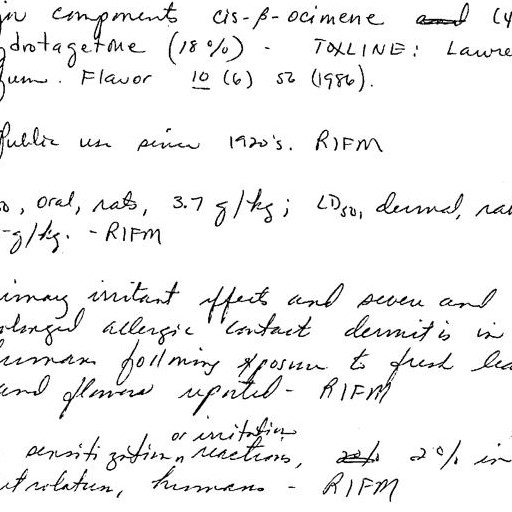 components cis-β-ocimene and (4
drotagetone (18%) - TOXLINE: Lawre
um. Flavor 10 (6) 56 (1986).
Public use since 1920's. RIFM
50, oral, rats, 3.7 g/kg; LD50, dermal, ra
g/kg. - RIFM
imary irritant effects and severe and
olonged allergic contact dermitis in
humans following exposure to fresh lea
and flowers reported - RIFM
or irritation
sensitization reactions, 2% in
etrolatum, humans - RIFM